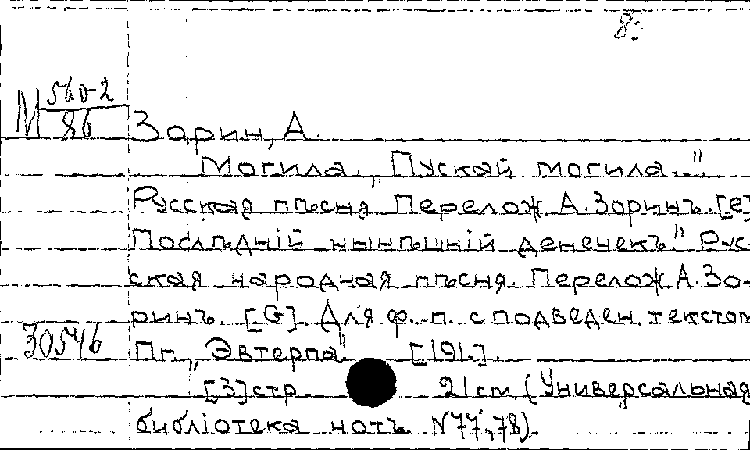 8
М 560-2
86
Зорин, А.
Могила. „Пускай могила..."
Русская пѣсня. Перелож. А. Зоринъ. [e]
„Послѣдній нынѣшній дененекъ" Рус-
ская народная пѣсня. Перелож. А. Зо-
ринъ. [G]. Для ф.-п. с подведен. текстом
30546
Пг., „Эвтерпа" [191.].
[3] стр. 21 см (Универсальная
библіотека нотъ N 77,78).